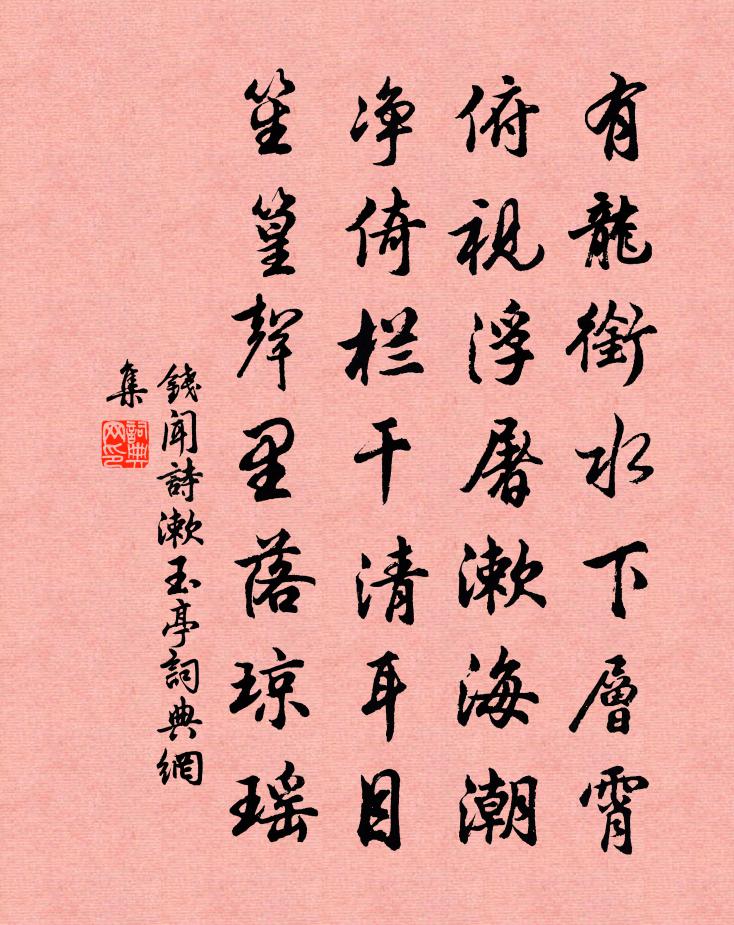 有龍銜水下層霄
俯視浮屠漱海潮
净倚栏干清耳目
笙篁聲里落琼瑶
錢聞詩漱玉亭詞典網
集
詞典
网印